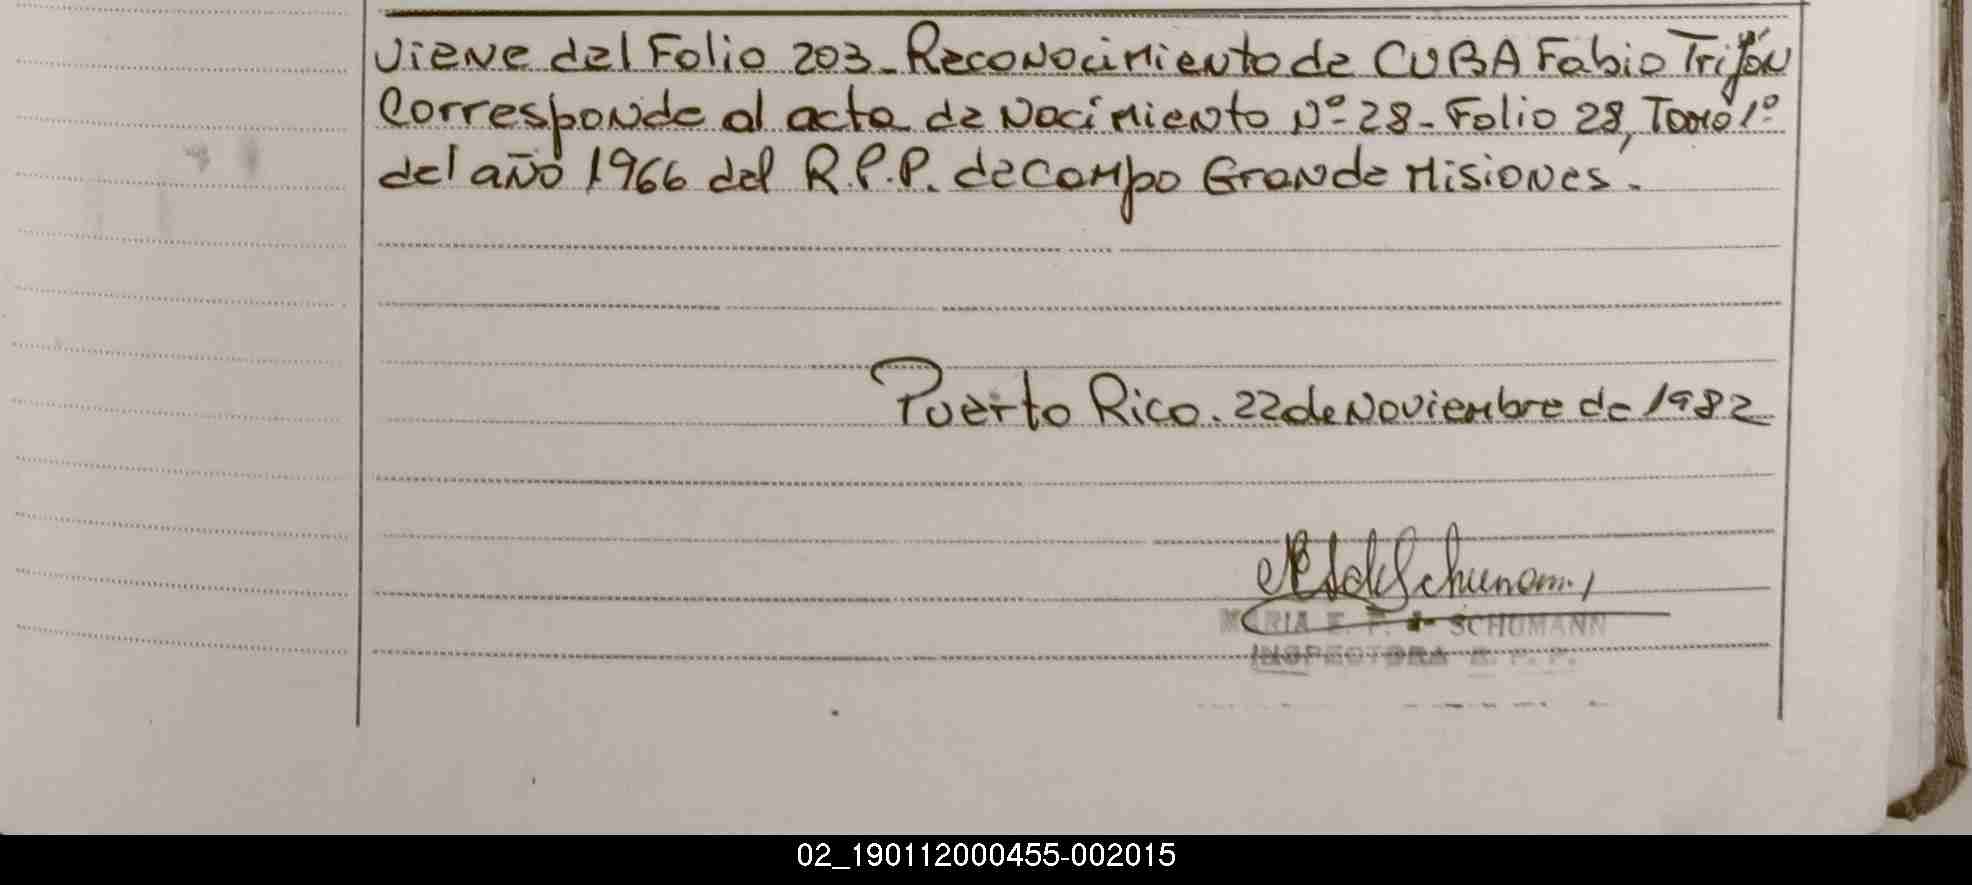 Viene del Folio 203_ Reconocimiento de CUBA Fabio Trifón
Corresponde al acta de Nacimiento Nº 28_ Folio 28, Tomo 1º
del año 1966 del R.P.P. de Campo Grande Misiones.
Puerto Rico. 22 de Noviembre de 1982
de Schumann
MARIA E. P. de SCHUMANN
INSPECTORA R. P. P.
02_190112000455-002015